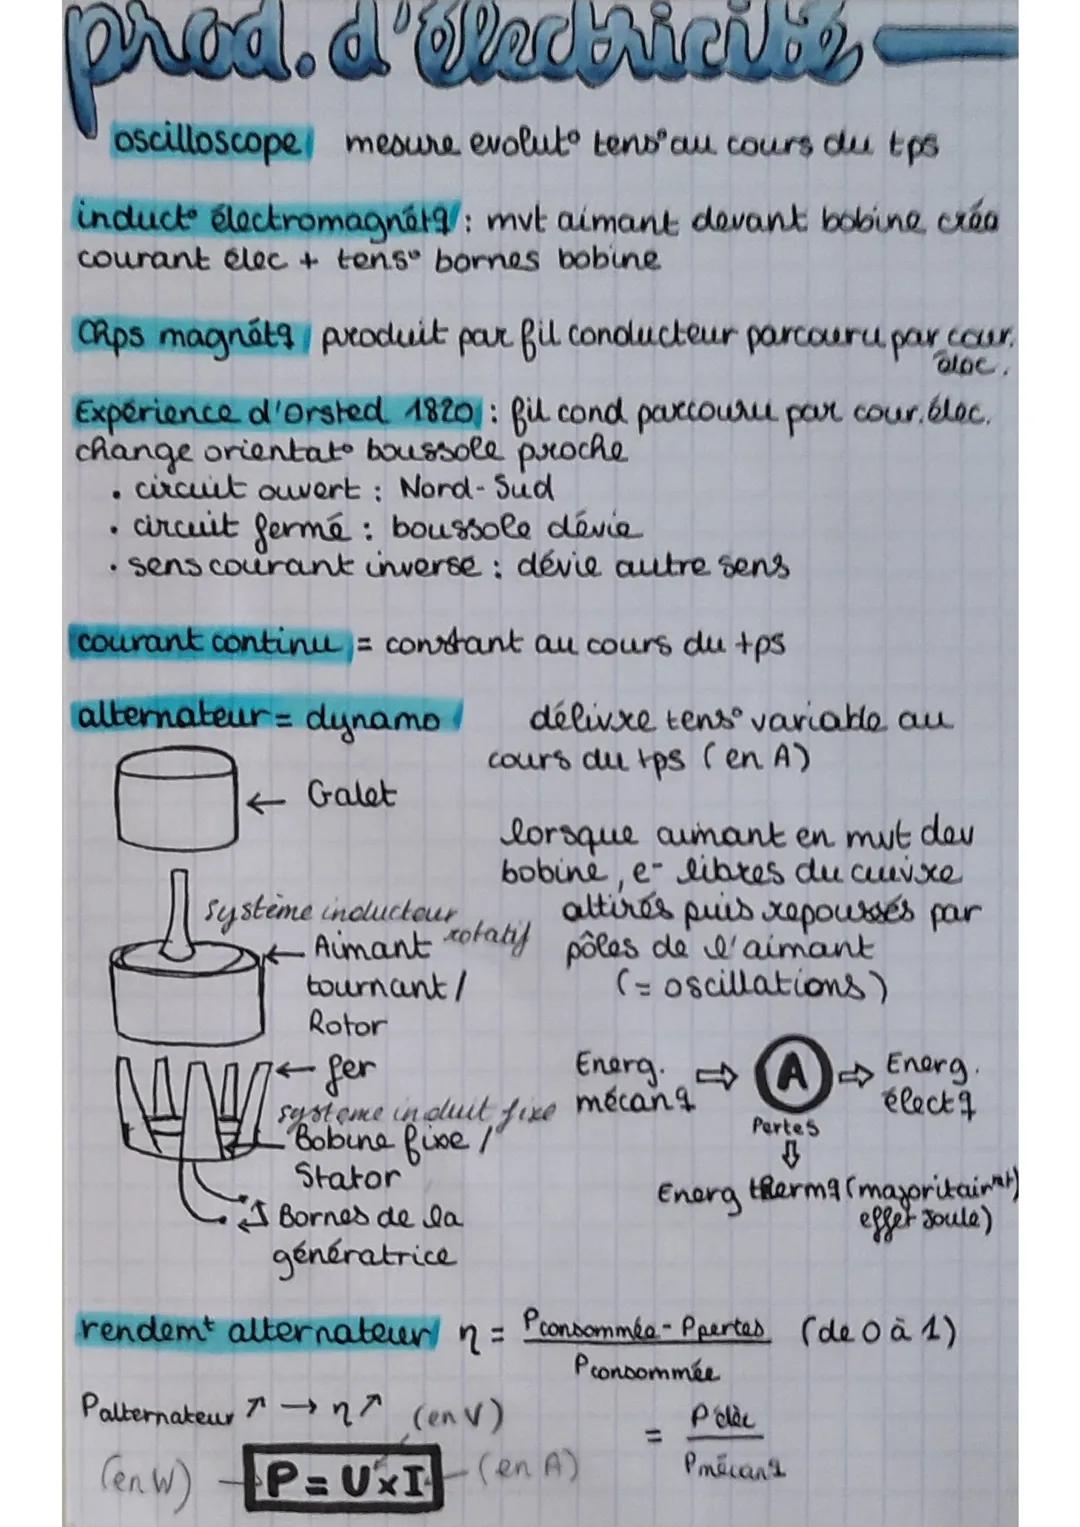 prod. d'électricité
oscilloscope mesure evolut° tens° au cours du tps
induct° électromagnétq : mvt aimant devant bobine crée
courant élec + tens° bornes bobine
Chps magnétq produit par fil conducteur parcouru par cour.
élec.
Expérience d'Orsted 1820 : fil cond parcouru par cour. élec.
change orientat° boussole proche
• circuit ouvert : Nord-Sud
• circuit fermé : boussole dévie
• sens courant inverse : dévie autre sens
courant continu = constant au cours du tps
alternateur = dynamo délivre tens° variable au
cours du tps (en A)
← Galet
lorsque aimant en mvt dev
bobine, e- libres du cuivre
attirés puis repoussés par
pôles de l'aimant
(= oscillations)
système inducteur
rotatif
← Aimant
tournant /
Rotor
← fer
système induit fixe
Bobine fixe /
Stator
Bornes de la
génératrice
Energ. ⇨ A ⇨ Energ.
mécanq électq
Pertes
⇩
Energ thermq (majoritairmt)
effet Joule)
rendemt alternateur η = Pconsommée - Ppertes (de 0 à 1)
Pconsommée
Palternateur ↗ → η ↗ (en V)
= Pélec
Pmécanq
(en W) P = U × I (en A)